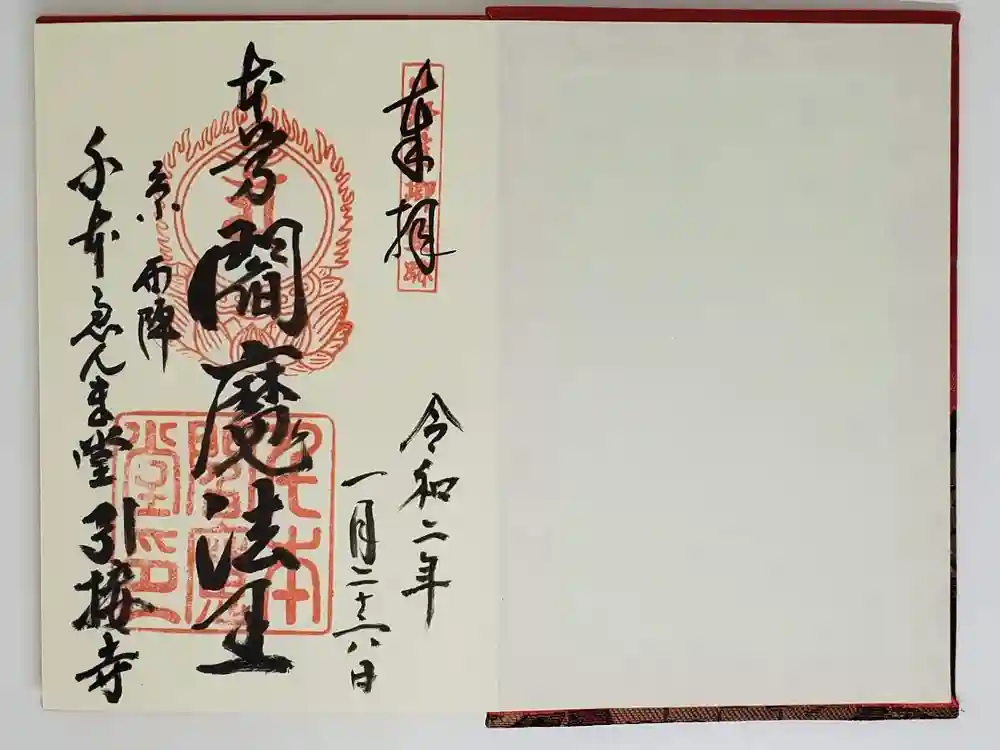 奉拝
令和二年
一月二十六日
本尊
閻魔法王
千本
閻魔
堂印
京 西陣
千本ゑんま堂 引接寺